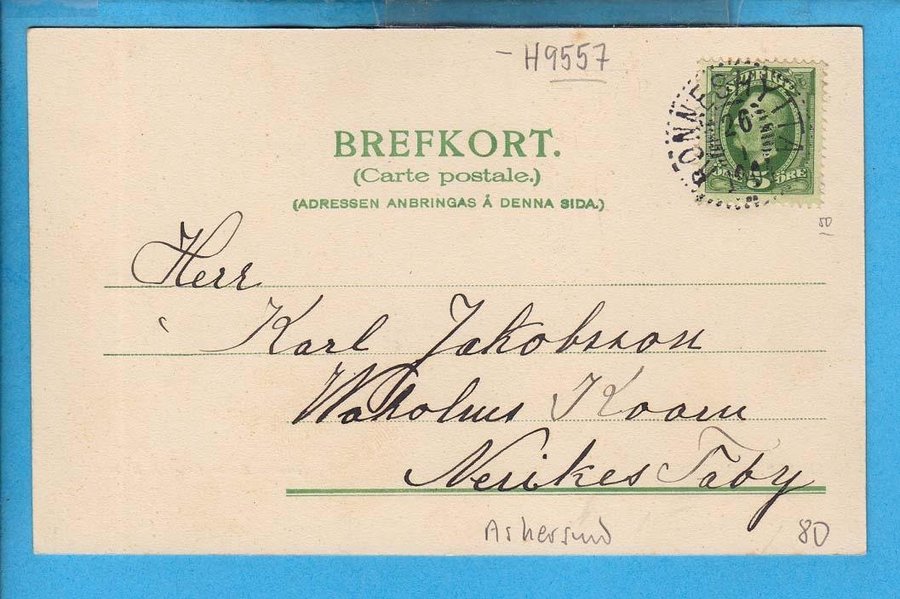 – H9557
BREFKORT.
(Carte postale.)
(ADRESSEN ANBRINGAS Å DENNA SIDA.)
RÖNNESHYTTA
26
1
ÖRE
50
Herr
Karl Jakobsson
Waholms Kvarn
Nerikes Täby
Askersund
80